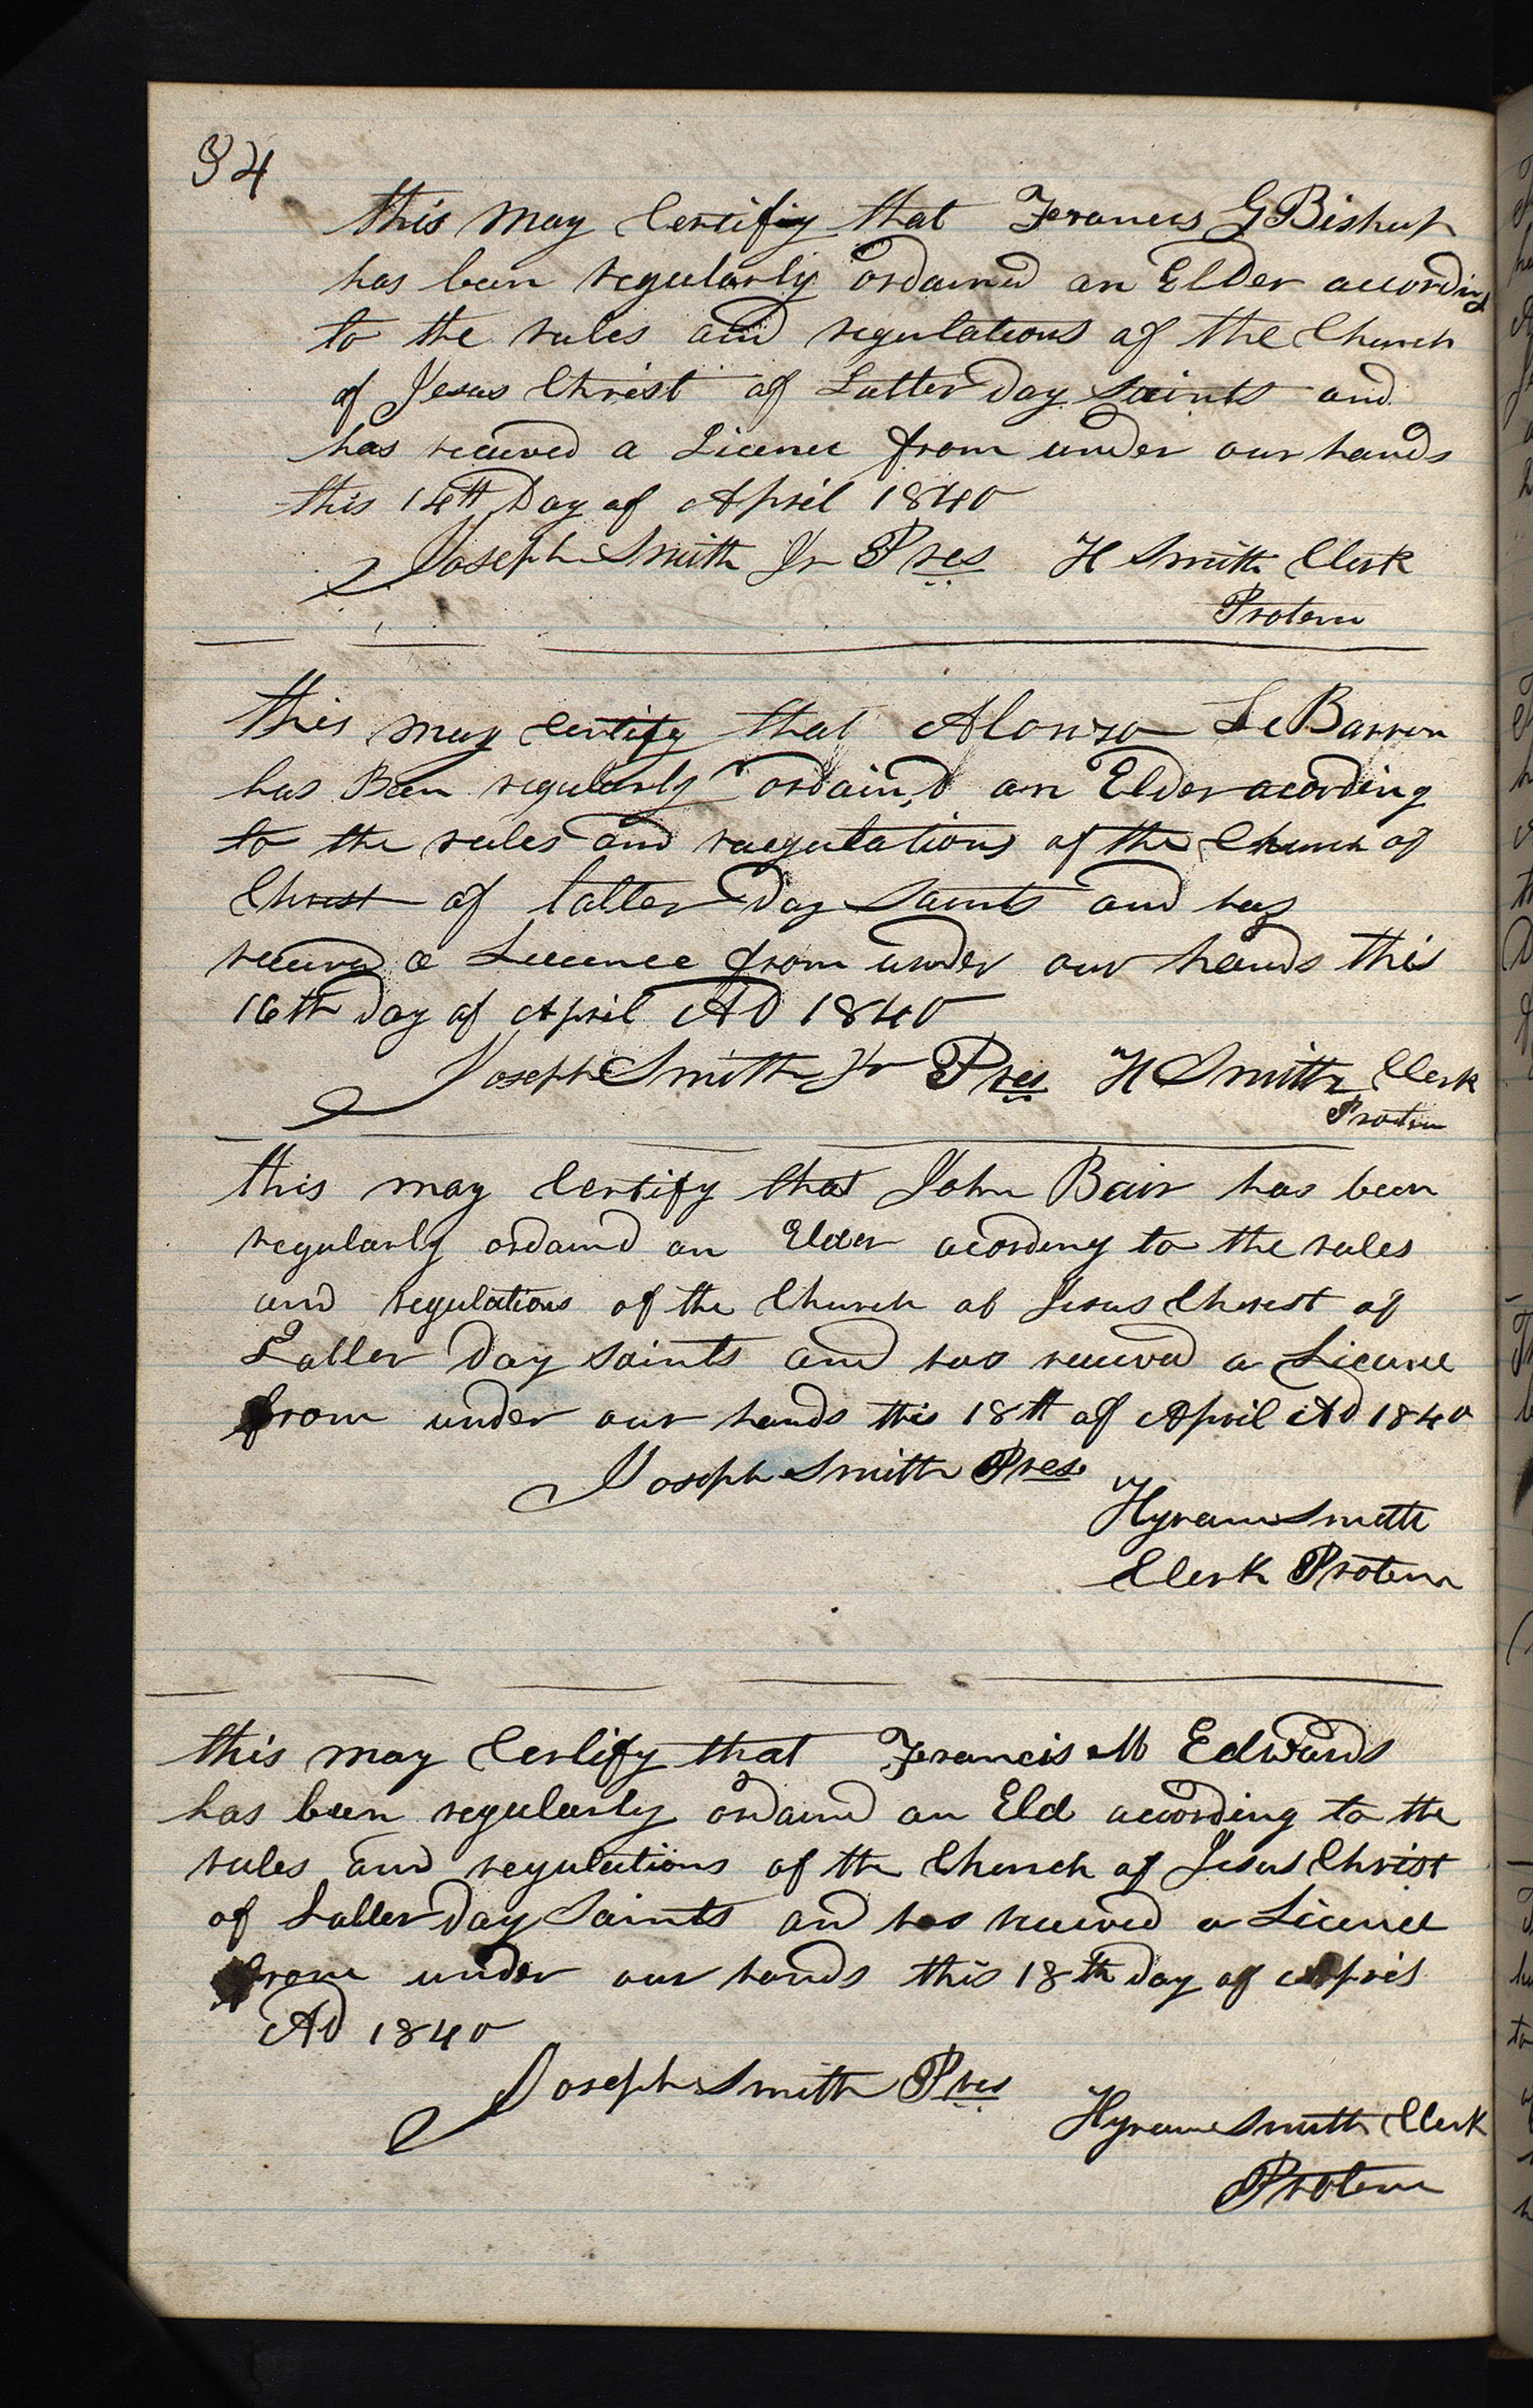 94
this may Certifiy that Francis G Bishop
has been regularly ordained an Elder according
to the rules and regulations of the Church
of Jesus Christ of Latter Day Saints and
has received a Licence from under our hands
this 14th Day of April 1840
Joseph Smith Jr Pres H Smith Clerk
Protem
this may certify that Alonzo LeBarron
has Been regularly ordain,d an Elder acording
to the rules and raegulations of the Church of
Christ of latter Day Saints and has
received a Licence from under our hands this
16th Day of April AD 1840
Joseph Smith Jr Pres H Smith Clerk
Protem
this may Certify that John Bair has been
regularly ordaind an Elder acording to the rules
and regulations of the Church of Jesus Christ of
Latter Day Saints and has received a Licence
from under our hands this 18th of April AD 1840
Joseph Smith Pres
Hyram Smith
Clerk Protem
this may Certify that Francis M Edwards
has been regularly ordaind an Eld according to the
rules and regulations of the Church of Jesus Christ
of Latter Day Saints and has received a Licence
from under our hands this 18th Day of April
AD 1840
Joseph Smith Pres
Hyram Smith Clerk
Protem